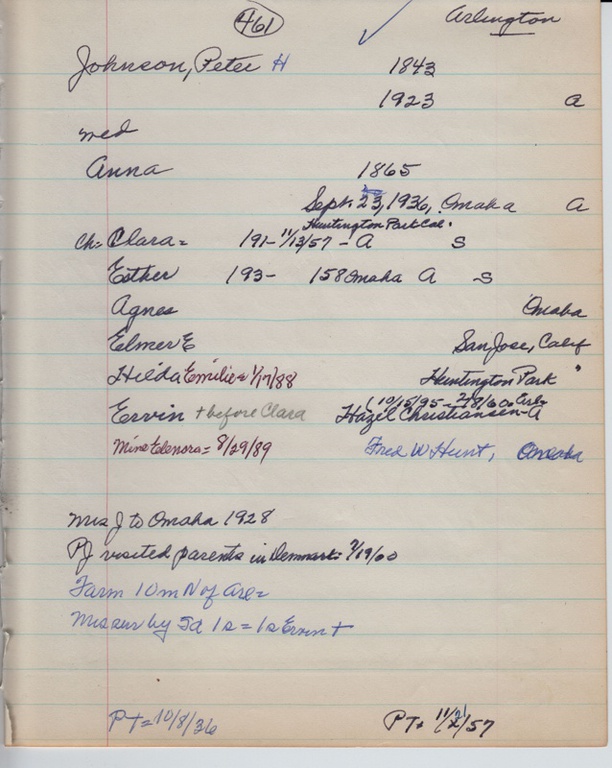 461
Arlington
Johnson, Peter H 1843
1923 A
med
Anna 1865
Sept. 23, 1936, Omaha A
Huntington Park Cal.
Ch. Clara = 191- 11/13/57 - A S
Esther 193- 158 Omaha A S
Agnes Omaha
Elmer E San Jose, Calif
Hilda Emilie = 1/17/88 Huntington Park "
(10/15/95 - 2/8/60 Arl.
Ervin + before Clara Hazel Christiansen - A
Mine Elenora = 8/29/89 Fred W Hunt, Omaha
Mrs J to Omaha 1928
PJ visited parents in Denmark: 7/19/00
Farm 10 m N of Arl =
Mrs sur by 5d 1s = 1s Ervin +
PT = 10/8/36 PT = 11/21/57